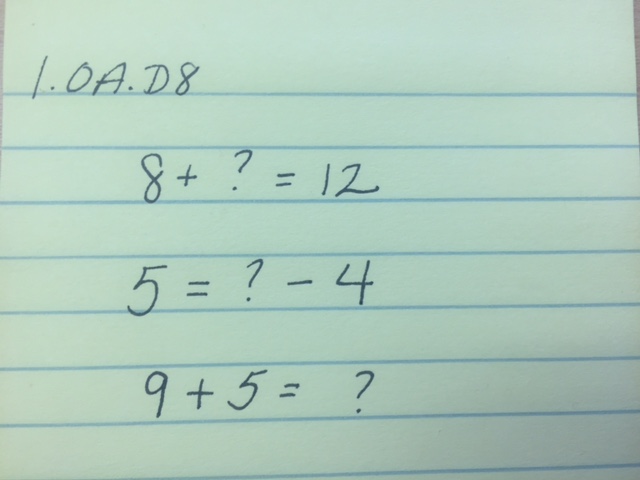 1.OA.D8
8 + ? = 12
5 = ? - 4
9 + 5 = ?